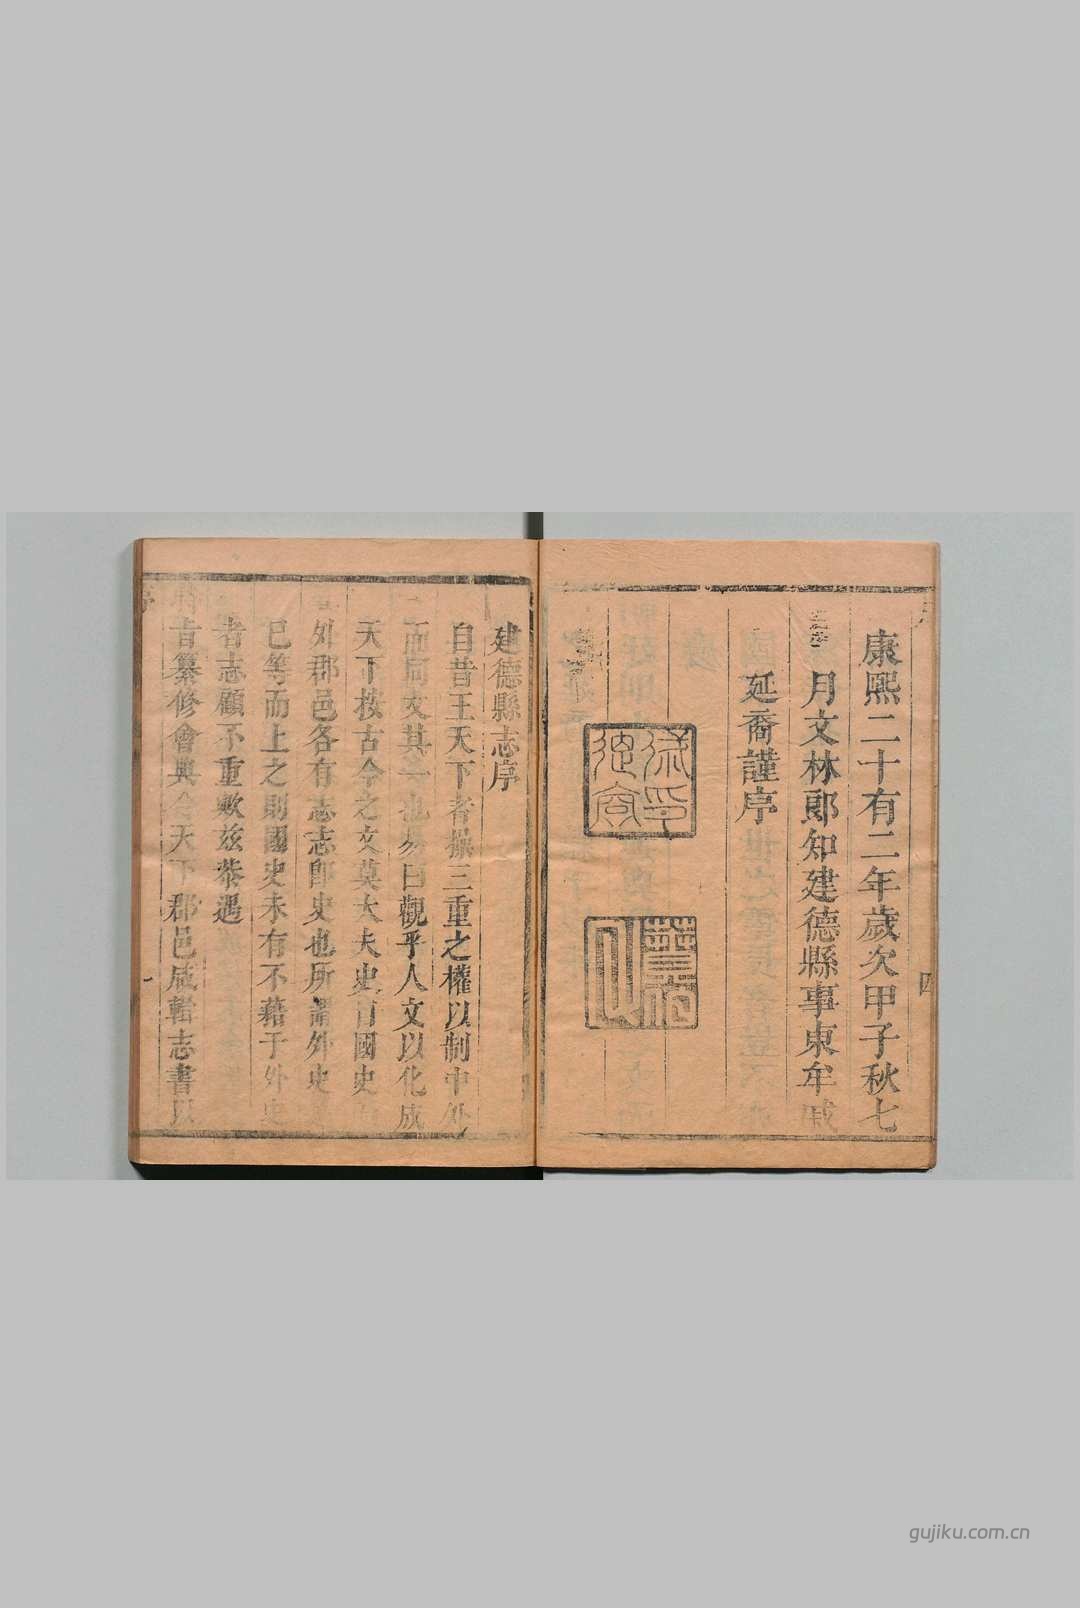 康熙二十有二年歲次甲子秋七
月文林郎知建德縣事東牟戚
延裔謹序
四
建德縣志序
自昔王天下者操三重之權以制中外
而同文其一也易曰觀乎人文以化成
天下按古今之文莫大夫史首國史
外郡邑各有志志卽史也所謂外史
已等而上之則國史未有不藉于外史
者志顧不重歟茲恭遇
旨纂修會典令天下郡邑咸輯志書以
序
一
gujiku.com.cn